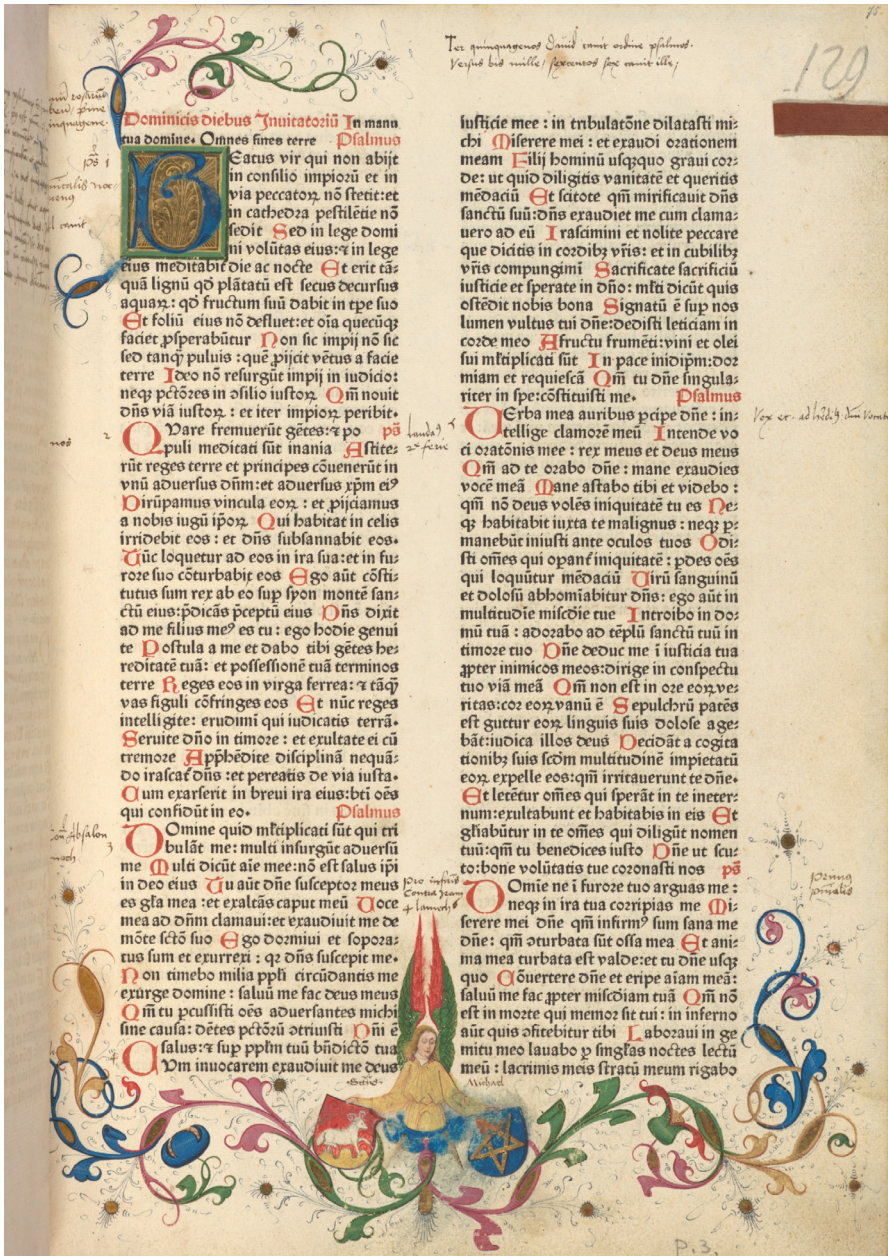 75
Ter quinquagenos dauid canit ordine psalmos.
Versus bis mille / sexcentos sex canit ille /
129
Dominicis diebus Inuitatoriū In manu
tua domine. Omnes fines terre Psalmus
BEatus vir qui non abijt
in consilio impiorū et in
via peccatoꝝ nō stetit:et
in cathedra pestilētie nō
sedit Sed in lege domi
ni volūtas eius:⁊ in lege
eius meditabit̄ die ac nocte Et erit tā⸗
quā lignū qd̄ plātatū est secus decursus
aquaꝝ: qd̄ fructum suū dabit in tp̄e suo
Et foliū eius nō defluet:et oīa quecūqꝫ
faciet ꝓsperabūtur Non sic impij nō sic
sed tanqꝫ puluis : quē ꝓijcit vētus a facie
terre Ideo nō resurgūt impij in iudicio:
neqꝫ pctōres in ↄsilio iustoꝝ Qm̄ nouit
dn̄s viā iustoꝝ : et iter impioꝝ peribit.
QVare fremuerūt gētes:⁊ po ps̄
puli meditati sūt inania Astite⸗
rūt reges terre et principes cōuenerūt in
vnū aduersus dn̄m:et aduersus xp̄m eiꝰ
Dirūpamus vincula eoꝝ : et ꝓijciamus
a nobis iugū ip̄oꝝ Qui habitat in celis
irridebit eos : et dn̄s subsannabit eos.
Tūc loquetur ad eos in ira sua:et in fu⸗
rore suo cōturbabit̄ eos Ego aūt cōsti⸗
tutus sum rex ab eo suꝑ syon montē san⸗
ctū eius:p̄dicās p̄ceptū eius Dn̄s dixit
ad me filius meꝰ es tu : ego hodie genui
te Postula a me et dabo tibi gētes he⸗
reditatē tuā: et possessionē tuā terminos
terre Reges eos in virga ferrea: ⁊ tāqꝫ
vas figuli cōfringes eos Et nūc reges
intelligite: erudimī qui iudicatis terrā.
Seruite dn̄o in timore : et exultate ei cū
tremore App̄hēdite disciplinā nequā⸗
do irascat̄ dn̄s :et pereatis de via iusta.
Cum exarserit in breui ira eius:bt̄i oēs
qui confidūt in eo. Psalmus
DOmine quid ml̄tiplicati sūt qui tri
bulāt me: multi insurgūt aduersū
me Multi dicūt aīe mee:nō est salus ip̄i
in deo eius Tu aūt dn̄e susceptor meus
es gl̄a mea :et exaltās caput meū Uoce
mea ad dn̄m clamaui:et exaudiuit me de
mōte sctō suo Ego dormiui et sopora⸗
tus sum et exurrexi : qꝛ dn̄s suscepit me.
Non timebo milia ppl̄i circūdantis me
exurge domine : saluū me fac deus meus
Qm̄ tu ꝑcussisti oēs aduersantes michi
sine causa: dētes pctōrū ↄtriusti Dn̄i ē
salus:⁊ suꝑ ppl̄m tuū bn̄dictō tua
CVm inuocarem exaudiuit me deus
iusticie mee : in tribulatōne dilatasti mi⸗
chi Miserere mei : et exaudi orationem
meam Filij hominū usqꝫquo graui cor⸗
de: ut quid diligitis vanitatē et queritis
mēdaciū Et scitote qm̄ mirificauit dn̄s
sanctū suū:dn̄s exaudiet me cum clama⸗
uero ad eū Irascimini et nolite peccare
que dicitis in cordibꝫ vr̄is: et in cubilibꝫ
vr̄is compungimī Sacrificate sacrificiū
iusticie et sperate in dn̄o: ml̄ti dicūt quis
ostēdit nobis bona Signatū ē suꝑ nos
lumen vultus tui dn̄e:dedisti leticiam in
corde meo A fructu frumēti:vini et olei
sui ml̄tiplicati sūt In pace inidip̄m:dor
miam et requiescā Qm̄ tu dn̄e singula⸗
riter in spe:cōstituisti me. Psalmus
VErba mea auribus ꝑcipe dn̄e : in⸗
tellige clamorē meū Intende vo
ci oratōnis mee : rex meus et deus meus
Qm̄ ad te orabo dn̄e: mane exaudies
vocē meā Mane astabo tibi et videbo :
qm̄ nō deus volēs iniquitatē tu es Ne⸗
qꝫ habitabit iuxta te malignus : neqꝫ ꝑ⸗
manebūt iniusti ante oculos tuos Odi⸗
sti om̄es qui oꝑant̄ iniquitatē : ꝑdes oēs
qui loquūtur mēdaciū Uirū sanguinū
et dolosū abhomīabitur dn̄s: ego aūt in
multitudīe miscdīe tue Introibo in do⸗
mū tuā : adorabo ad tēplū sanctū tuū in
timore tuo Dn̄e deduc me ī iusticia tua
ꝓpter inimicos meos:dirige in conspectu
tuo viā meā Qm̄ non est in ore eoꝝ ve⸗
ritas:cor eoꝝ vanū ē Sepulchrū patēs
est guttur eoꝝ linguis suis dolose age⸗
bāt:iudica illos deus Decidāt a cogita
tionibꝫ suis scd̄m multitudinē impietatū
eoꝝ expelle eos:qm̄ irritauerunt te dn̄e.
Et letētur om̄es qui sperāt in te ineter⸗
num:exultabunt et habitabis in eis Et
gl̄iabūtur in te om̄es qui diligūt nomen
tuū: qm̄ tu benedices iusto Dn̄e ut scu⸗
to:bone volūtatis tue coronasti nos ps̄
DOmīe ne ī furore tuo arguas me :
neqꝫ in ira tua corripias me Mi⸗
serere mei dn̄e qm̄ infirmꝰ sum sana me
dn̄e: qm̄ ↄturbata sūt ossa mea Et ani⸗
ma mea turbata est valde:et tu dn̄e usqꝫ
quo Cōuertere dn̄e et eripe aīam meā:
saluū me fac ꝓpter miscdīam tuā Qm̄ nō
est in morte qui memor sit tui : in inferno
aūt quis ↄfitebitur tibi Laboraui in ge
mitu meo lauabo ꝑ singl̄as noctes lectū
meū : lacrimis meis stratū meum rigabo
ps̄ 1
2
Absalon
3
4
Primus
pn̄ialis
Michael
P.3.